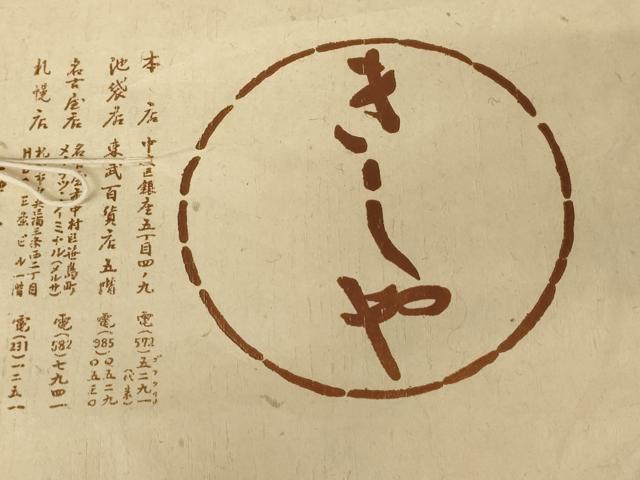 きしや
本店 中央区銀座五丁目四ノ九 電(572)五二九一
(代表)
池袋店 東武百貨店五階 電(985)〇五二九
〇五三〇
名古屋店 名古屋市中村区笹島町 電(582)七九四一
(メルサ)
札幌店 札幌市中央区南三条西二丁目 電(231)一二五一
ビル一階